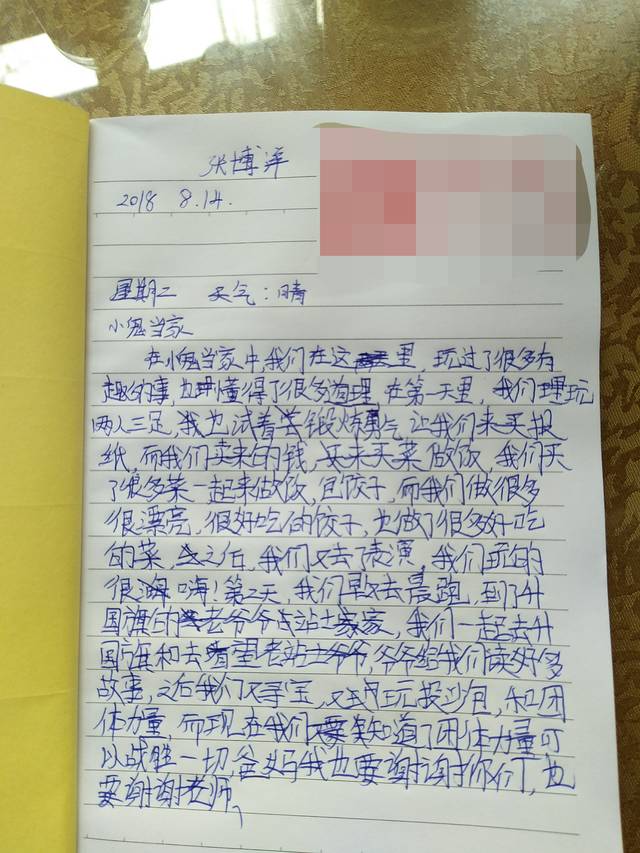 张博洋
2018 8.14.
星期二 天气:晴
小鬼当家
在小鬼当家中,我们在这里,玩过了很多有
趣的事,也理懂得了很多道理,在第一天里,我们理玩
两人三足,我也试着尝锻炼勇气,让我们来买报
纸,而我们卖来的钱,买菜做饭,我们买
了很多菜一起来做饭,包饺子,而我们做很多
很漂亮,很好吃的饺子,也做了很多好吃
的菜,之后,我们又去了表演,我们玩的
很嗨!第2天,我们早去晨跑,到了升
国旗的老爷爷战士家,我们一起去升
国旗和去看望老战士爷爷,爷爷给我们读好多
故事,之后我们又寻宝,又玩投沙包,和团
体力量,而现在我们知道了团体力量可
以战胜一切,爸妈我也要谢谢你们,也
要谢谢老师,